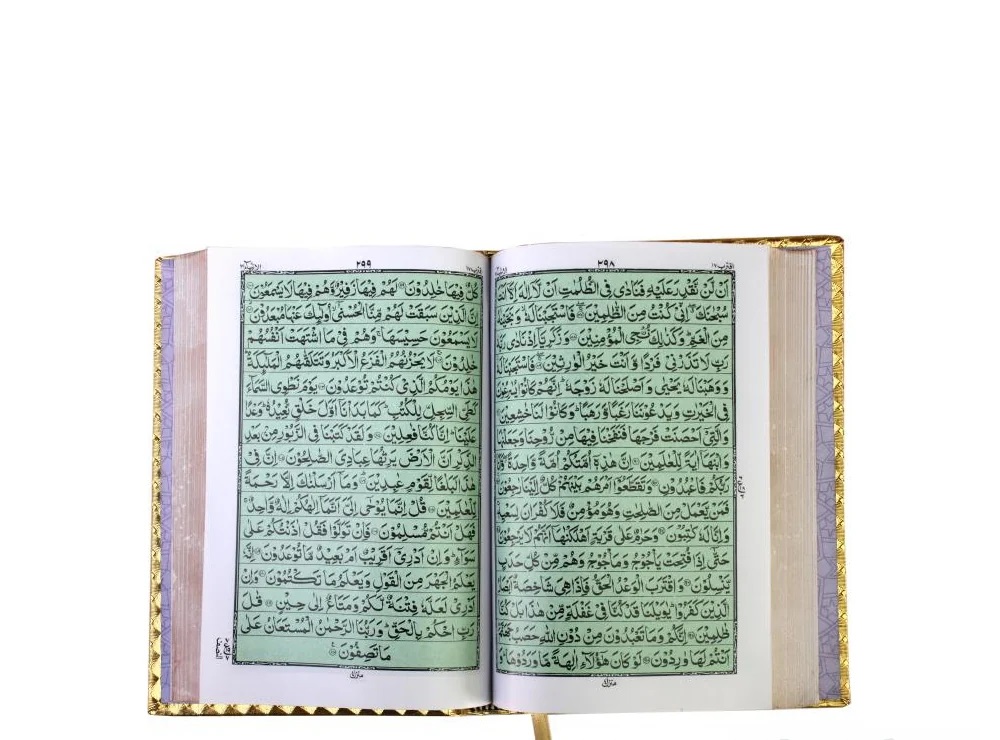 اقترب ١٧
٢٩٨
اَنْ لَّنْ نَّقْدِرَ عَلَيْهِ فَنَادٰى فِى الظُّلُمٰتِ اَنْ لَّاۤ اِلٰهَ اِلَّاۤ اَنْتَ
سُبْحٰنَكَ اِنِّىْ كُنْتُ مِنَ الظّٰلِمِيْنَ فَاسْتَجَبْنَا لَهٗ وَنَجَّيْنٰهُ
مِنَ الْغَمِّ وَكَذٰلِكَ نُنْجِى الْمُؤْمِنِيْنَ وَزَكَرِيَّاۤ اِذْ نَادٰى رَبَّهٗ
رَبِّ لَا تَذَرْنِىْ فَرْدًا وَّاَنْتَ خَيْرُ الْوٰرِثِيْنَ فَاسْتَجَبْنَا لَهٗ
وَوَهَبْنَا لَهٗ يَحْيٰى وَاَصْلَحْنَا لَهٗ زَوْجَهٗ اِنَّهُمْ كَانُوْا يُسٰرِعُوْنَ
فِى الْخَيْرٰتِ وَيَدْعُوْنَنَا رَغَبًا وَّرَهَبًا وَكَانُوْا لَنَا خٰشِعِيْنَ
وَالَّتِىْۤ اَحْصَنَتْ فَرْجَهَا فَنَفَخْنَا فِيْهَا مِنْ رُّوْحِنَا وَجَعَلْنٰهَا
وَابْنَهَاۤ اٰيَةً لِّلْعٰلَمِيْنَ اِنَّ هٰذِهٖۤ اُمَّتُكُمْ اُمَّةً وَّاحِدَةً وَّاَنَا
رَبُّكُمْ فَاعْبُدُوْنِ وَتَقَطَّعُوْۤا اَمْرَهُمْ بَيْنَهُمْ كُلٌّ اِلَيْنَا رٰجِعُوْنَ
فَمَنْ يَّعْمَلْ مِنَ الصّٰلِحٰتِ وَهُوَ مُؤْمِنٌ فَلَا كُفْرَانَ لِسَعْيِهٖ
وَاِنَّا لَهٗ كٰتِبُوْنَ وَحَرٰمٌ عَلٰى قَرْيَةٍ اَهْلَكْنٰهَاۤ اَنَّهُمْ لَا يَرْجِعُوْنَ
حَتّٰۤى اِذَا فُتِحَتْ يَاْجُوْجُ وَمَاْجُوْجُ وَهُمْ مِّنْ كُلِّ حَدَبٍ
يَّنْسِلُوْنَ وَاقْتَرَبَ الْوَعْدُ الْحَقُّ فَاِذَا هِىَ شَاخِصَةٌ اَبْصَارُ
الَّذِيْنَ كَفَرُوْا يٰوَيْلَنَا قَدْ كُنَّا فِىْ غَفْلَةٍ مِّنْ هٰذَا بَلْ كُنَّا
ظٰلِمِيْنَ اِنَّكُمْ وَمَا تَعْبُدُوْنَ مِنْ دُوْنِ اللّٰهِ حَصَبُ جَهَنَّمَ
اَنْتُمْ لَهَا وٰرِدُوْنَ لَوْ كَانَ هٰۤؤُلَاۤءِ اٰلِهَةً مَّا وَرَدُوْهَا وَ
منزل ٤
اقترب ١٧
٢٩٩
كُلٌّ فِيْهَا خٰلِدُوْنَ لَهُمْ فِيْهَا زَفِيْرٌ وَّهُمْ فِيْهَا لَا يَسْمَعُوْنَ
اِنَّ الَّذِيْنَ سَبَقَتْ لَهُمْ مِّنَّا الْحُسْنٰۤى اُولٰۤئِكَ عَنْهَا مُبْعَدُوْنَ
لَا يَسْمَعُوْنَ حَسِيْسَهَا وَهُمْ فِىْ مَا اشْتَهَتْ اَنْفُسُهُمْ
خٰلِدُوْنَ لَا يَحْزُنُهُمُ الْفَزَعُ الْاَكْبَرُ وَتَتَلَقّٰهُمُ الْمَلٰۤئِكَةُ
هٰذَا يَوْمُكُمُ الَّذِىْ كُنْتُمْ تُوْعَدُوْنَ يَوْمَ نَطْوِى السَّمَآءَ
كَطَىِّ السِّجِلِّ لِلْكُتُبِ كَمَا بَدَاْنَاۤ اَوَّلَ خَلْقٍ نُّعِيْدُهٗ وَعْدًا
عَلَيْنَا اِنَّا كُنَّا فٰعِلِيْنَ وَلَقَدْ كَتَبْنَا فِى الزَّبُوْرِ مِنْۢ بَعْدِ
الذِّكْرِ اَنَّ الْاَرْضَ يَرِثُهَا عِبَادِىَ الصّٰلِحُوْنَ اِنَّ فِىْ
هٰذَا لَبَلٰغًا لِّقَوْمٍ عٰبِدِيْنَ وَمَاۤ اَرْسَلْنٰكَ اِلَّا رَحْمَةً
لِّلْعٰلَمِيْنَ قُلْ اِنَّمَا يُوْحٰۤى اِلَىَّ اَنَّمَاۤ اِلٰهُكُمْ اِلٰهٌ وَّاحِدٌ
فَهَلْ اَنْتُمْ مُّسْلِمُوْنَ فَاِنْ تَوَلَّوْا فَقُلْ اٰذَنْتُكُمْ عَلٰى
سَوَآءٍ وَاِنْ اَدْرِىْۤ اَقَرِيْبٌ اَمْ بَعِيْدٌ مَّا تُوْعَدُوْنَ اِنَّهٗ
يَعْلَمُ الْجَهْرَ مِنَ الْقَوْلِ وَيَعْلَمُ مَا تَكْتُمُوْنَ وَاِنْ
اَدْرِىْ لَعَلَّهٗ فِتْنَةٌ لَّكُمْ وَمَتَاعٌ اِلٰى حِيْنٍ قٰلَ
رَبِّ احْكُمْ بِالْحَقِّ وَرَبُّنَا الرَّحْمٰنُ الْمُسْتَعَانُ عَلٰى
مَا تَصِفُوْنَ
منزل ٤